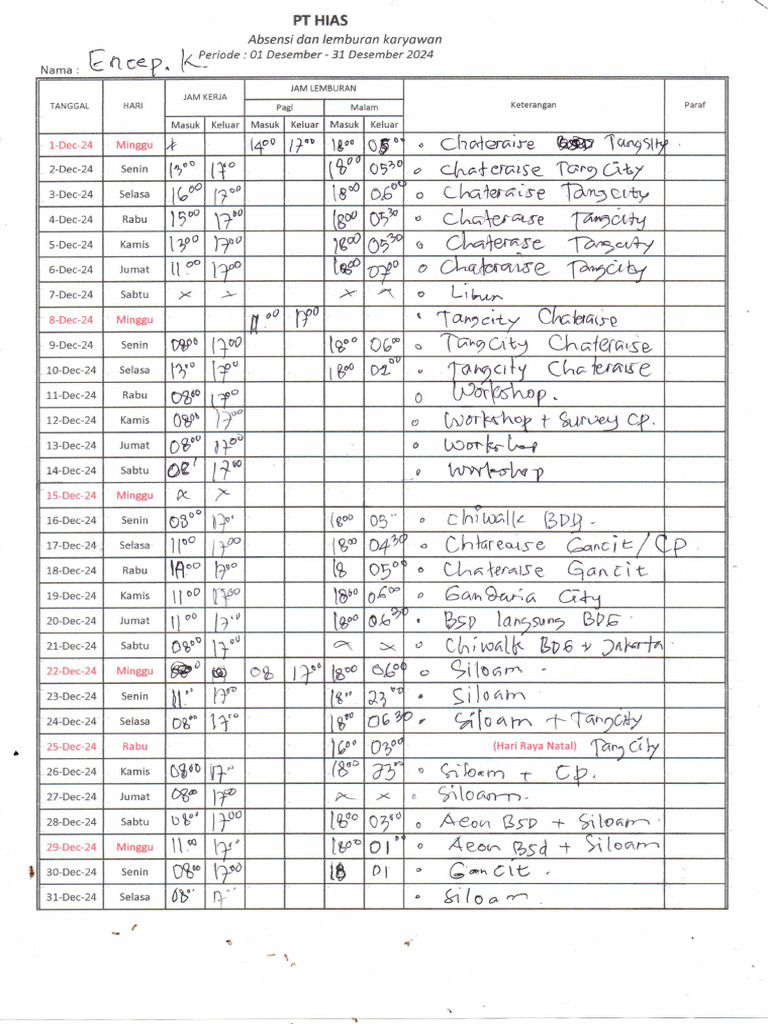 PT HIAS
Absensi dan lemburan karyawan
Periode : 01 Desember - 31 Desember 2024
Nama : Encep. K.
TANGGAL HARI JAM KERJA JAM LEMBURAN Keterangan Paraf
Pagi Malam
Masuk Keluar Masuk Keluar Masuk Keluar
1-Dec-24 Minggu x 14 00 17 00 18 00 05 00 Chateraise Tangsity.
2-Dec-24 Senin 13 00 17 0 18 00 05 30 Chateraise Tang City
3-Dec-24 Selasa 16 00 17 00 18 00 06 00 Chateraise Tangcity
4-Dec-24 Rabu 15 00 17 00 18 00 05 30 Chateraise Tangcity
5-Dec-24 Kamis 13 00 17 00 18 00 05 30 Chaterase Tangcity
6-Dec-24 Jumat 11.00 17 00 18 00 07 00 Chateraise Tangcity
7-Dec-24 Sabtu x x x x Libur
8-Dec-24 Minggu 11.00 17 00 Tangcity Chateraise
9-Dec-24 Senin 08 00 17 00 18 00 06 00 Tangcity Chateraise
10-Dec-24 Selasa 13 00 17 00 18 00 02 00 Tangcity Chateraise
11-Dec-24 Rabu 08 00 17 00 Workshop.
12-Dec-24 Kamis 08 00 17 00 Workshop + Survey CP.
13-Dec-24 Jumat 08 00 17 00 Workshop
14-Dec-24 Sabtu 08' 17 00 Workshop
15-Dec-24 Minggu x x
16-Dec-24 Senin 08 00 17 '' 18 00 05 '' Chiwalk BDG.
17-Dec-24 Selasa 11 00 17 00 18 00 04 30 Chtareaise Gancit/CP
18-Dec-24 Rabu 14 00 17 00 18 05 00 Chateraise Gancit
19-Dec-24 Kamis 11 00 17 00 18 00 06 00 Gandaria City
20-Dec-24 Jumat 11 00 17 '' 18 00 06 30 BSD langsung BDG.
21-Dec-24 Sabtu 08 00 17 00 x x Chiwalk BDG + Jakarta.
22-Dec-24 Minggu 08 17 00 18 00 06 00 Siloam.
23-Dec-24 Senin 11 '' 17 00 18 '' 23 00 Siloam
24-Dec-24 Selasa 08 00 17 '' 18 00 06 30 Siloam + Tangcity
25-Dec-24 Rabu 16 00 03 00 (Hari Raya Natal) Tangcity
26-Dec-24 Kamis 08 00 17 '' 18 00 23 00 Siloam + CP.
27-Dec-24 Jumat 08 00 17 00 x x Siloam.
28-Dec-24 Sabtu 08 '' 17 00 18 00 03 00 Aeon BSD + Siloam.
29-Dec-24 Minggu 11 00 17 '' 18 00 01 00 Aeon Bsd + Siloam
30-Dec-24 Senin 08 00 17 00 18 01 Gancit.
31-Dec-24 Selasa 08 '' 17 '' Siloam